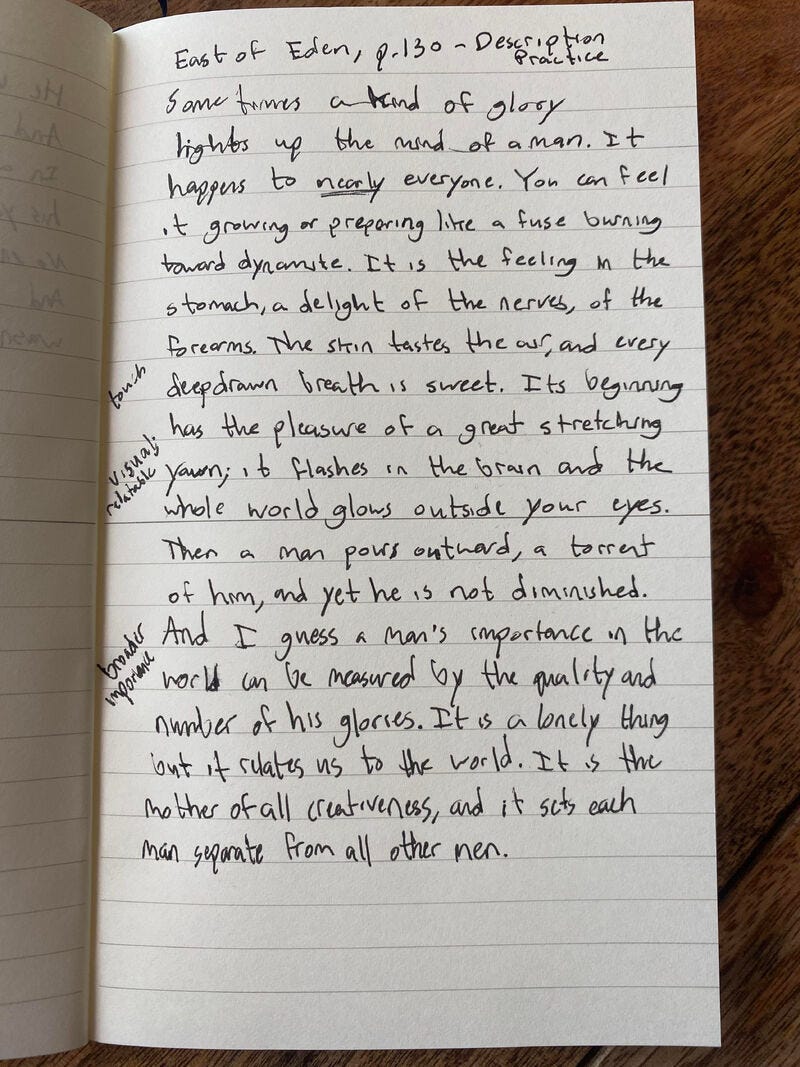 East of Eden, p.130 - Description
Practice
Sometimes a kind of glory
lights up the mind of a man. It
happens to nearly everyone. You can feel
it growing or preparing like a fuse burning
toward dynamite. It is the feeling in the
stomach, a delight of the nerves, of the
forearms. The skin tastes the air, and every
touch
deepdrawn breath is sweet. Its beginning
has the pleasure of a great stretching
visual;
relatable
yawn; it flashes in the brain and the
whole world glows outside your eyes.
Then a man pours outward, a torrent
of him, and yet he is not diminished.
And I guess a man's importance in the
broader
importance
world can be measured by the quality and
number of his glories. It is a lonely thing
but it relates us to the world. It is the
mother of all creativeness, and it sets each
man separate from all other men.